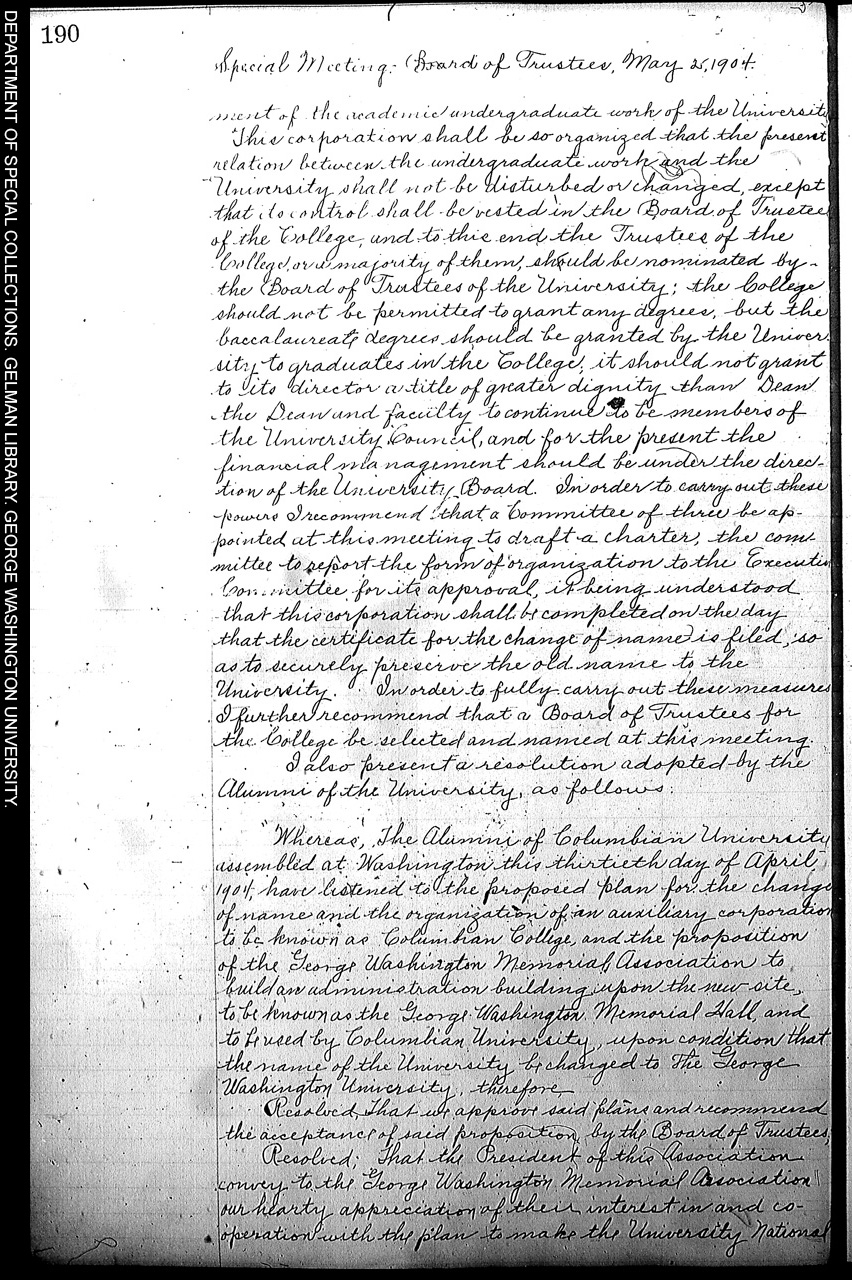 190
Special Meeting. Board of Trustees, May 2, 1904.
ment of the academic undergraduate work of the University
This corporation shall be so organized that the present
relation between the undergraduate work and the
University shall not be disturbed or changed, except
that its control shall be vested in the Board of Trustees
of the College, and to this end the Trustees of the
College, or a majority of them, should be nominated by
the Board of Trustees of the University; the College
should not be permitted to grant any degrees, but the
baccalaureate degrees should be granted by the Univer-
sity to graduates in the College, it should not grant
to its director a title of greater dignity than Dean
the Dean and faculty to continue to be members of
the University Council, and for the present the
financial management should be under the direc-
tion of the University Board. In order to carry out these
powers I recommend that a Committee of three be ap-
pointed at this meeting to draft a charter, the com-
mittee to report the form of organization to the Executive
Committee for its approval, it being understood
that this corporation shall be completed on the day
that the certificate for the change of name is filed, so
as to securely preserve the old name to the
University. In order to fully carry out these measures
I further recommend that a Board of Trustees for
the College be selected and named at this meeting.
I also present a resolution adopted by the
Alumni of the University, as follows:
"Whereas, The Alumni of Columbian University
assembled at Washington this thirtieth day of April
1904, have listened to the proposed plan for the change
of name and the organization of an auxiliary corporation
to be known as Columbian College, and the proposition
of the George Washington Memorial Association to
build an administration building upon the new site,
to be known as the George Washington Memorial Hall, and
to be used by Columbian University, upon condition that
the name of the University be changed to The George
Washington University, therefore
Resolved, That we approve said plans and recommend
the acceptance of said proposition by the Board of Trustees,
Resolved; That the President of this Association
convey to the George Washington Memorial Association
our hearty appreciation of their interest in and co-
operation with the plan to make the University National
DEPARTMENT OF SPECIAL COLLECTIONS. GELMAN LIBRARY. GEORGE WASHINGTON UNIVERSITY.